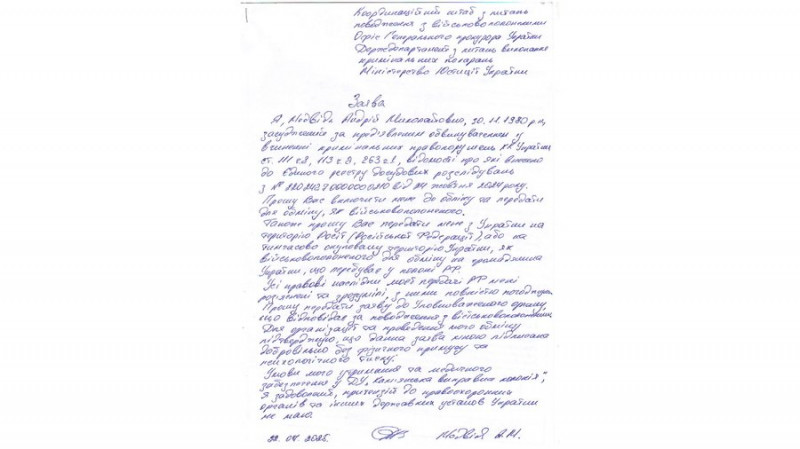 Координаційний штаб з питань
поводження з військовополоненими
Офіс Генерального прокурора України
Держдепартамент з питань виконання
кримінальних покарань
Міністерство Юстиції України
Заява
Я, Медвідь Андрій Миколайович, 20.11.1980 р.н.,
засуджений за пред'явленим обвинуваченням у
вчиненні кримінальних правопорушень КК України
ст. 111 ч 2, 113 ч 2, 263 ч 1, відомості про які внесено
до Єдиного реєстру досудових розслідувань
з № від жовтня 2024 року.
Прошу Вас включити мене до обміну та передати
для обміну, як військовополоненого.
Також прошу Вас передати мене з України на
територію Росії (Російської Федерації) або на
тимчасово окуповану територію України, як
військовополоненого для обміну на громадянина
України, що перебуває у полоні РФ.
Усі правові наслідки моєї передачі РФ мені
роз'яснені та зрозумілі, з ними повністю погоджуюсь.
Прошу передати заяву до Уповноваженого органу,
що відповідає за поводження з військовополоненими.
Для організації та проведення мого обміну
підтверджую, що данна заява мною підписана
добровільно без фізичного примусу та
психологічного тиску.
Умови мого утримання та медичного
забезпечення у ДУ "Кам'янська виправна колонія",
Я задоволений, претензій до правоохоронних
органів та інших державних установ України
не маю.
22.04.2025. Медвідь А.М.